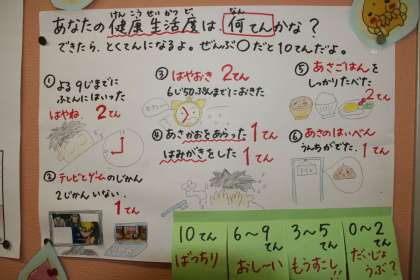 あなたの健康生活度は何てんかな？
けんこうせいかつど なん
できたら、とくてんになるよ。ぜんぶ○だと10てんだよ。
①よる9じまでに
ふとんにはいった
はやね 2てん
②テレビとゲームのじかん
2じかんいない
1てん
③はやおき 2てん
6じ30ぷんまでにおきた
④あさかおをあらった 1てん
はみがきをした 1てん
⑤あさごはんを
しっかりたべた
2てん
⑥あさのはいべん
うんちがでた 1てん
10てん
ばっちり
6〜9てん
おし〜い
3〜5てん
もうすこし
0〜2てん
だいじょうぶ？